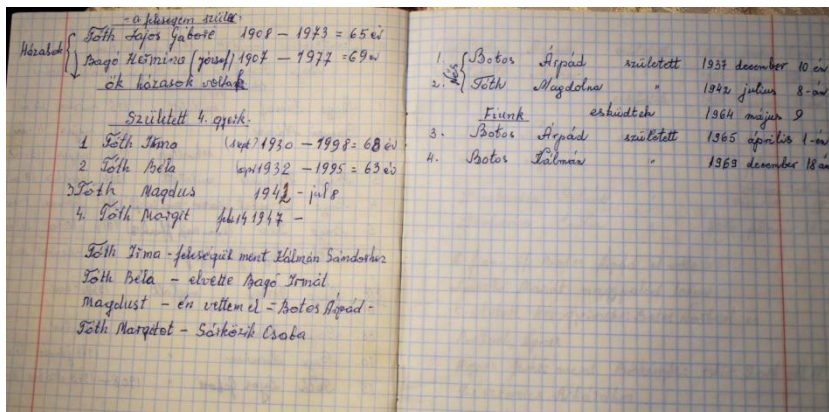 - a feleségem szülei -
Házasok { Tóth Lajos Gáboré 1908 – 1973 = 65 év
Bagó Hermina (József) 1907 – 1977 = 69 év
ők házasok voltak
Született 4. gyerik.
1 Tóth Irma (szept) 1930 – 1998 = 68 év
2 Tóth Béla 1932 – 1995 = 63 év
3 Tóth Magdus 1942 - jul 8
4. Tóth Margit feb 14 1947 –
Tóth Irma - feleségül ment Kálmán Sándorhoz
Tóth Béla – elvette Bagó Irmát
Magdust – én vettem el = Botos Árpád -
Tóth Margitot – Sárközik Csaba
1. Botos Árpád született 1937 december 10 én
2. Tóth Magdolna " 1942 július 8-án
Fiunk esküdtek 1964 május 9
3. Botos Árpád született 1965 április 1-én
4. Botos Kálmán " 1969 december 18 án